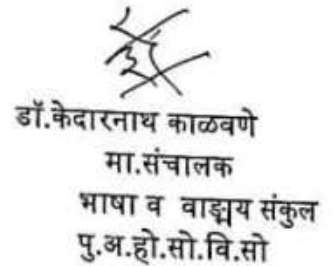 डॉ.केदारनाथ काळवणे
मा.संचालक
भाषा व वाङ्मय संकुल
पु.अ.हो.सो.वि.सो